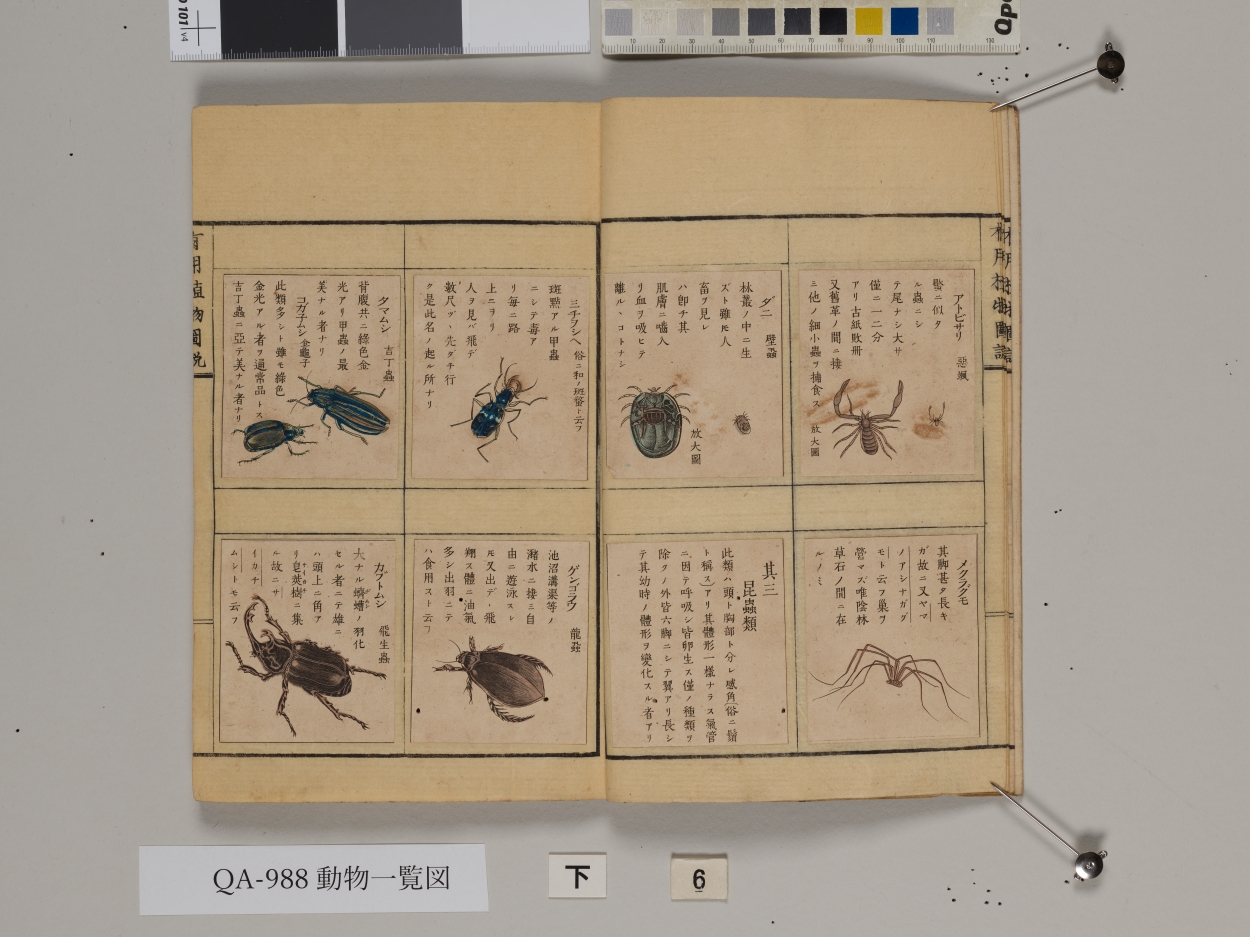 アトビサリ 惡颯
蟹ニ似タ
ル蟲ニシ
テ尾ナシ大サ
僅ニ一二分
アリ古紙敗冊
又舊草ノ間ニ接
ミ他ノ細小蟲ヲ捕食ス
放大圖
ダニ 壁蝨
林叢ノ中ニ生
ズト雖𪜈人
畜ヲ見レ
ハ即チ其
肌膚ニ囓入
リ血ヲ吸ヒテ
離ル丶コトナシ
放大圖
三チヲシヘ 俗ニ和ノ斑蝥ト云フ
斑㸃アル甲蟲
ニシテ毒ア
リ每ニ路
上ニヲリ
人ヲ見バ飛デ
數尺ヅ丶先ダチ行
ク是此名ノ起ル所ナリ
タマムシ 吉丁蟲
背腹共ニ綠色金
光アリ甲蟲ノ最
美ナル者ナリ
コガ子ムシ 金龜子
此類多シト雖モ綠色
金光アル者ヲ通常品トス
吉丁蟲ニ亞テ美ナル者ナリ
メクラグモ
其脚甚タ長キ
ガ故ニ又ヤマ
ノアシナガグ
モト云フ巢ヲ
營マズ唯陰林
草石ノ間ニ在
ルノミ
其三
昆蟲類
此類ハ頭ト胸部ト分レ感角(俗ニ鬚
ト稱ス)アリ其體形一樣ナラス氣管
ニ因テ呼吸シ皆卵生ス僅ノ種類ヲ
除クノ外皆六脚ニシテ翼アリ長シ
テ其幼時ノ體形ヲ變化スル者アリ
ゲンゴラウ 龍蝨
池沼溝渠等ノ
瀦水ニ接ミ自
由ニ遊泳スレ
𪜈又出デ丶飛
翔ス體ニ油氣
多シ出羽ニテ
ハ食用スト云フ
カブトムシ 飛生蟲
大ナル蠐螬ノ羽化
セル者ニテ雄ニ
ハ頭上ニ角ア
リ皂莢樹ニ集
ル故ニサ
イカチ
ムシトモ云フ
有用植物圖說
QA-988 動物一覧図
下
6